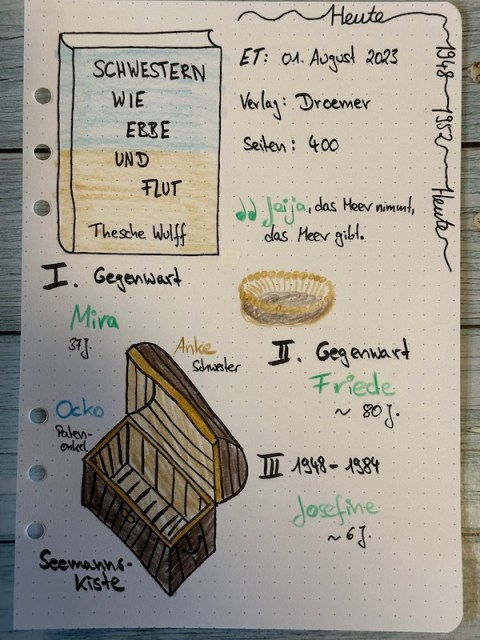 Heute
1948
1952
Heute
SCHWESTERN
WIE
EBBE
UND
FLUT
Thesche Wulff
ET: 01. August 2023
Verlag: Droemer
Seiten: 400
Jaija, das Meer nimmt,
das Meer gibt.
I. Gegenwart
Mira
37 J.
Anke
Schwester
Ocko
Paten-
onkel
Seemanns-
Kiste
II. Gegenwart
Friede
~ 80 J.
III 1948 - 1984
Josefine
~ 6 J.